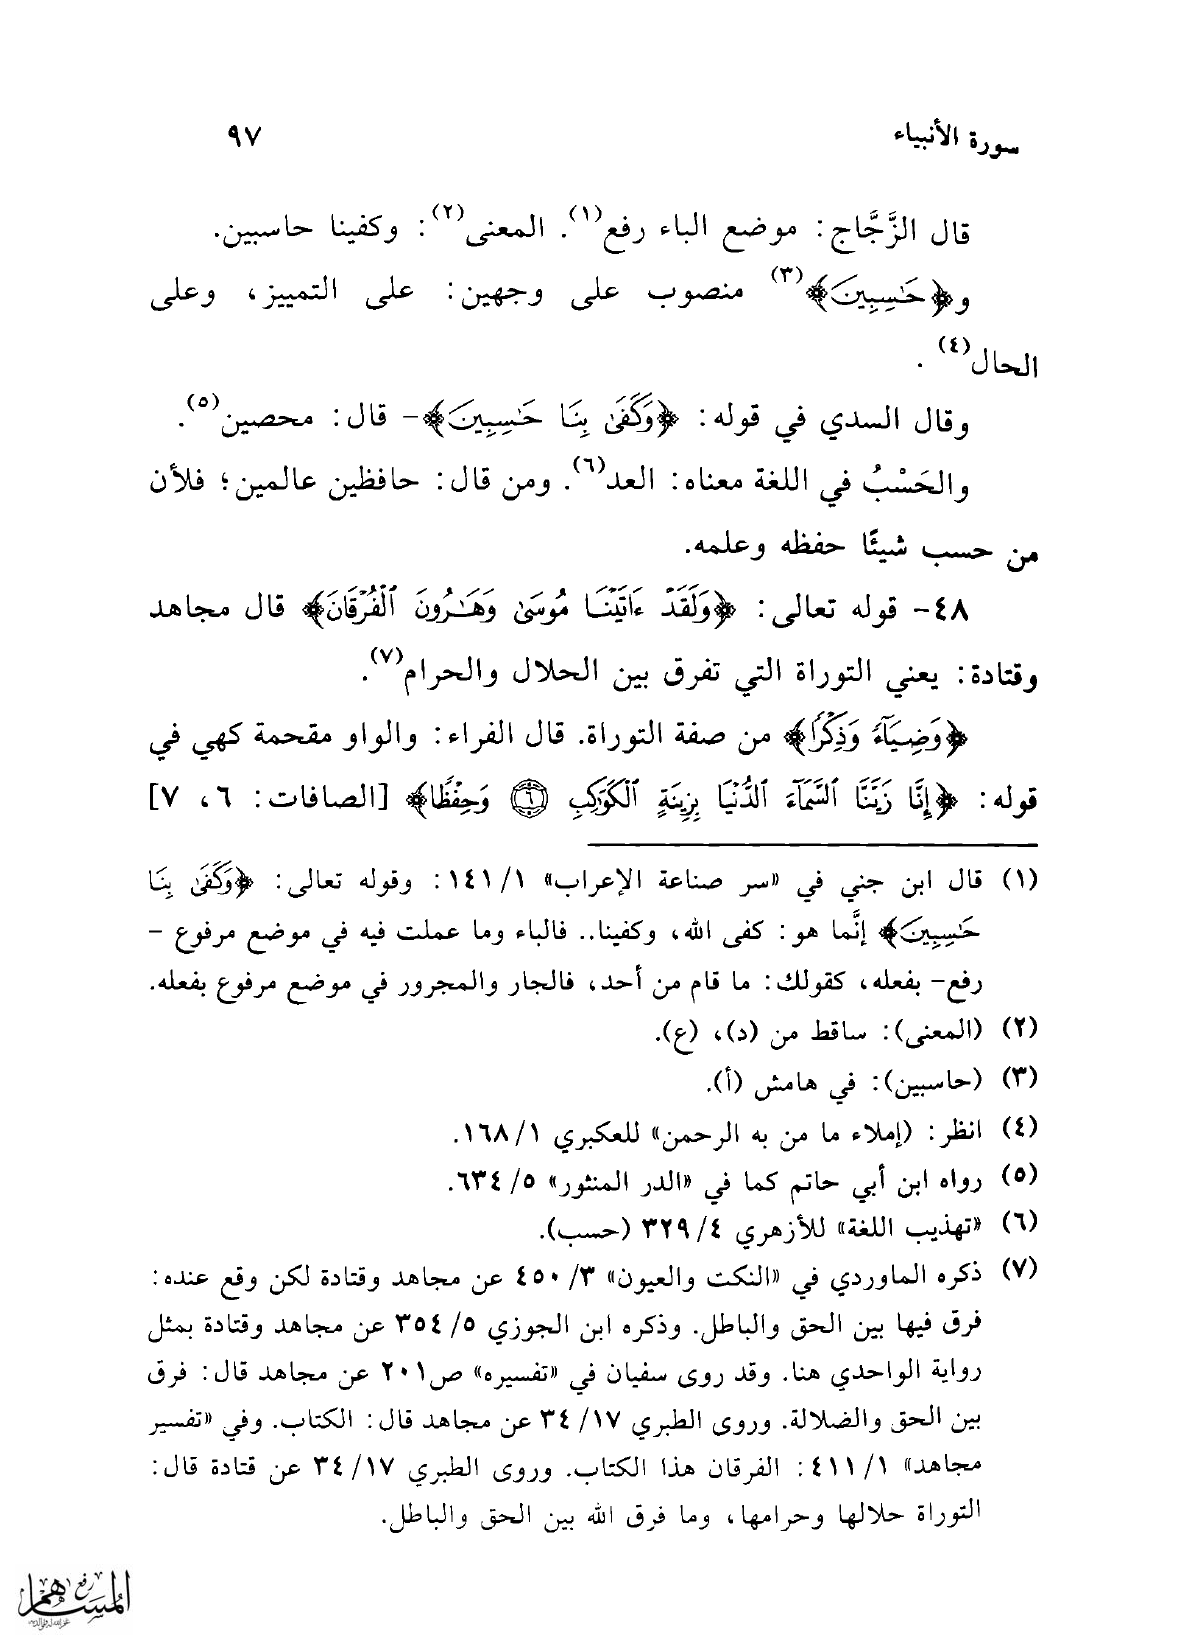 سورة الأنبياء ٩٧
قال الزَّجَّاج: موضع الباء رفع(١). المعنى(٢): وكفينا حاسبين.
و﴿حَٰسِبِينَ﴾(٣) منصوب على وجهين: على التمييز، وعلى
الحال(٤).
وقال السدي في قوله: ﴿وَكَفَىٰ بِنَا حَٰسِبِينَ﴾- قال: محصين(٥).
والحَسْبُ في اللغة معناه: العد(٦). ومن قال: حافظين عالمين؛ فلأن
من حسب شيئًا حفظه وعلمه.
٤٨- قوله تعالى: ﴿وَلَقَدْ ءَاتَيْنَا مُوسَىٰ وَهَٰرُونَ ٱلْفُرْقَانَ﴾ قال مجاهد
وقتادة: يعني التوراة التي تفرق بين الحلال والحرام(٧).
﴿وَضِيَآءً وَذِكْرًا﴾ من صفة التوراة. قال الفراء: والواو مقحمة كهي في
قوله: ﴿إِنَّا زَيَّنَّا ٱلسَّمَآءَ ٱلدُّنْيَا بِزِينَةٍ ٱلْكَوَاكِبِ ٦ وَحِفْظًا﴾ [الصافات: ٦، ٧]
(١) قال ابن جني في «سر صناعة الإعراب» ١/١٤١: وقوله تعالى: ﴿وَكَفَىٰ بِنَا
حَٰسِبِينَ﴾ إنَّما هو: كفى الله، وكفينا.. فالباء وما عملت فيه في موضع مرفوع -
رفع- بفعله، كقولك: ما قام من أحد، فالجار والمجرور في موضع مرفوع بفعله.
(٢) (المعنى): ساقط من (د)، (ع).
(٣) (حاسبين): في هامش (أ).
(٤) انظر: (إملاء ما من به الرحمن» للعكبري ١/١٦٨.
(٥) رواه ابن أبي حاتم كما في «الدر المنثور» ٥/٦٣٤.
(٦) «تهذيب اللغة» للأزهري ٤/٣٢٩ (حسب).
(٧) ذكره الماوردي في «النكت والعيون» ٣/٤٥٠ عن مجاهد وقتادة لكن وقع عنده:
فرق فيها بين الحق والباطل. وذكره ابن الجوزي ٥/٣٥٤ عن مجاهد وقتادة بمثل
رواية الواحدي هنا. وقد روى سفيان في «تفسيره» ص٢٠١ عن مجاهد قال: فرق
بين الحق والضلالة. وروى الطبري ١٧/٣٤ عن مجاهد قال: الكتاب. وفي «تفسير
مجاهد» ١/٤١١: الفرقان هذا الكتاب. وروى الطبري ١٧/٣٤ عن قتادة قال:
التوراة حلالها وحرامها، وما فرق الله بين الحق والباطل.